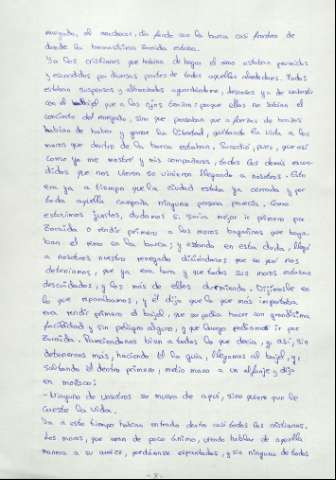 renegado, al anochecer, dio fondo con la barca casi frontero de
donde la hermosísima Zoraida estaba.
Ya los cristianos que habían de bogar el remo estaban prevenidos
y escondidos por diversas partes de todos aquellos alrededores. Todos
estaban suspensos y alborozados aguardándome, deseosos ya de embestir
con el bajel que a los ojos tenían; porque ellos no sabían el
concierto del renegado, sino que pensaban que a fuerza de brazos
habían de haber y ganar la libertad, quitando la vida a los
moros que dentro de la barca estaban. Sucedió, pues, que así
como yo me mostré y mis compañeros, todos los demás escon-
didos que nos vieron se vinieron llegando a nosotros. Esto
era ya a tiempo que la ciudad estaba ya cerrada y por
toda aquella campaña ninguna persona parecía. Como
estuvimos juntos, dudamos si sería mejor ir primero por
Zoraida o rendir primero a los moros bagarinos que boga-
ban el remo en la barca; y estando en esta duda, llegó
a nosotros nuestro renegado diciéndonos que en qué nos
deteníamos, que ya era hora y que todos sus moros estaban
descuidados, y los más de ellos durmiendo. Dijímosle en
lo que reparábamos, y él dijo que lo que más importaba
era rendir primero el bajel, que se podía hacer con grandísima
facilidad y sin peligro alguno, y que luego podíamos ir por
Zoraida. Pareciéndonos bien a todos lo que decía, y así, sin
detenernos más, haciendo él la guía, llegamos al bajel, y,
saltando él dentro primero, metió mano a un alfanje y dijo
en morisco:
- Ninguno de vosotros se mueva de aquí, si no quiere que le
cueste la vida.
Ya a este tiempo habían entrado dentro casi todos los cristianos.
Los moros, que eran de poco ánimo, viendo hablar de aquella
manera a su arráez, quedáronse espantados, y sin ninguno de todos